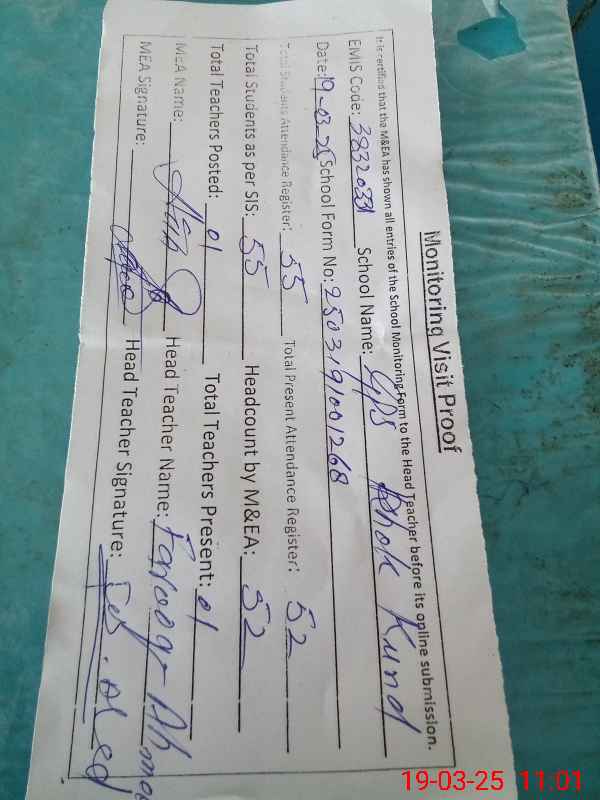 Monitoring Visit Proof
It is certified that the M&EA has shown all entries of the School Monitoring Form to the Head Teacher before its online submission.
EMIS Code: 38320331 School Name: GPS Dhok Kund
Date: 19-03-25 School Form No: 2503191001268
Total Students Attendance Register: 55 Total Present Attendance Register: 52
Total Students as per SIS: 55 Headcount by M&EA: 52
Total Teachers Posted: 01 Total Teachers Present: 01
MEA Name: Head Teacher Name: Farooq Ahmed
MEA Signature: Head Teacher Signature:
19-03-25 11:01